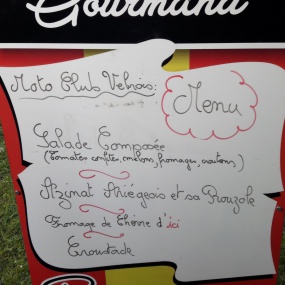 Gourmand
Moto Club Velnois:
Menu
Salade Composée
(Tomates confites, melons, fromages, croutons,)
Azinat Ariégeois et sa Rouzole
Fromage de Chèvre d'ici
Croustade